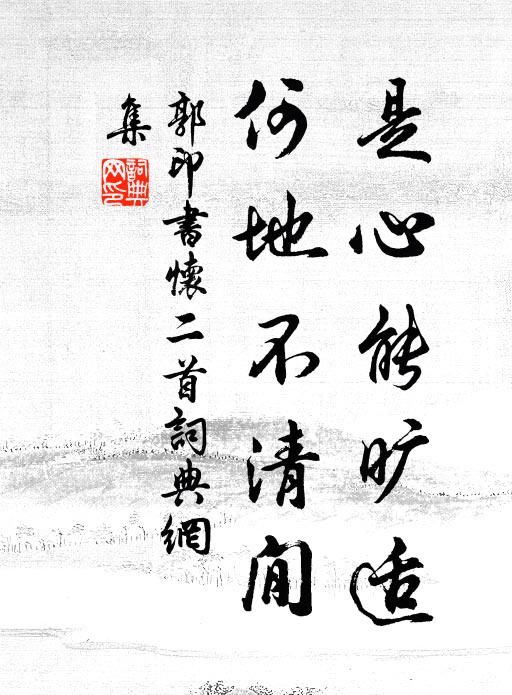 是心能旷适
何地不清闲
郭印書懷二首詞典網
集
詞典网印